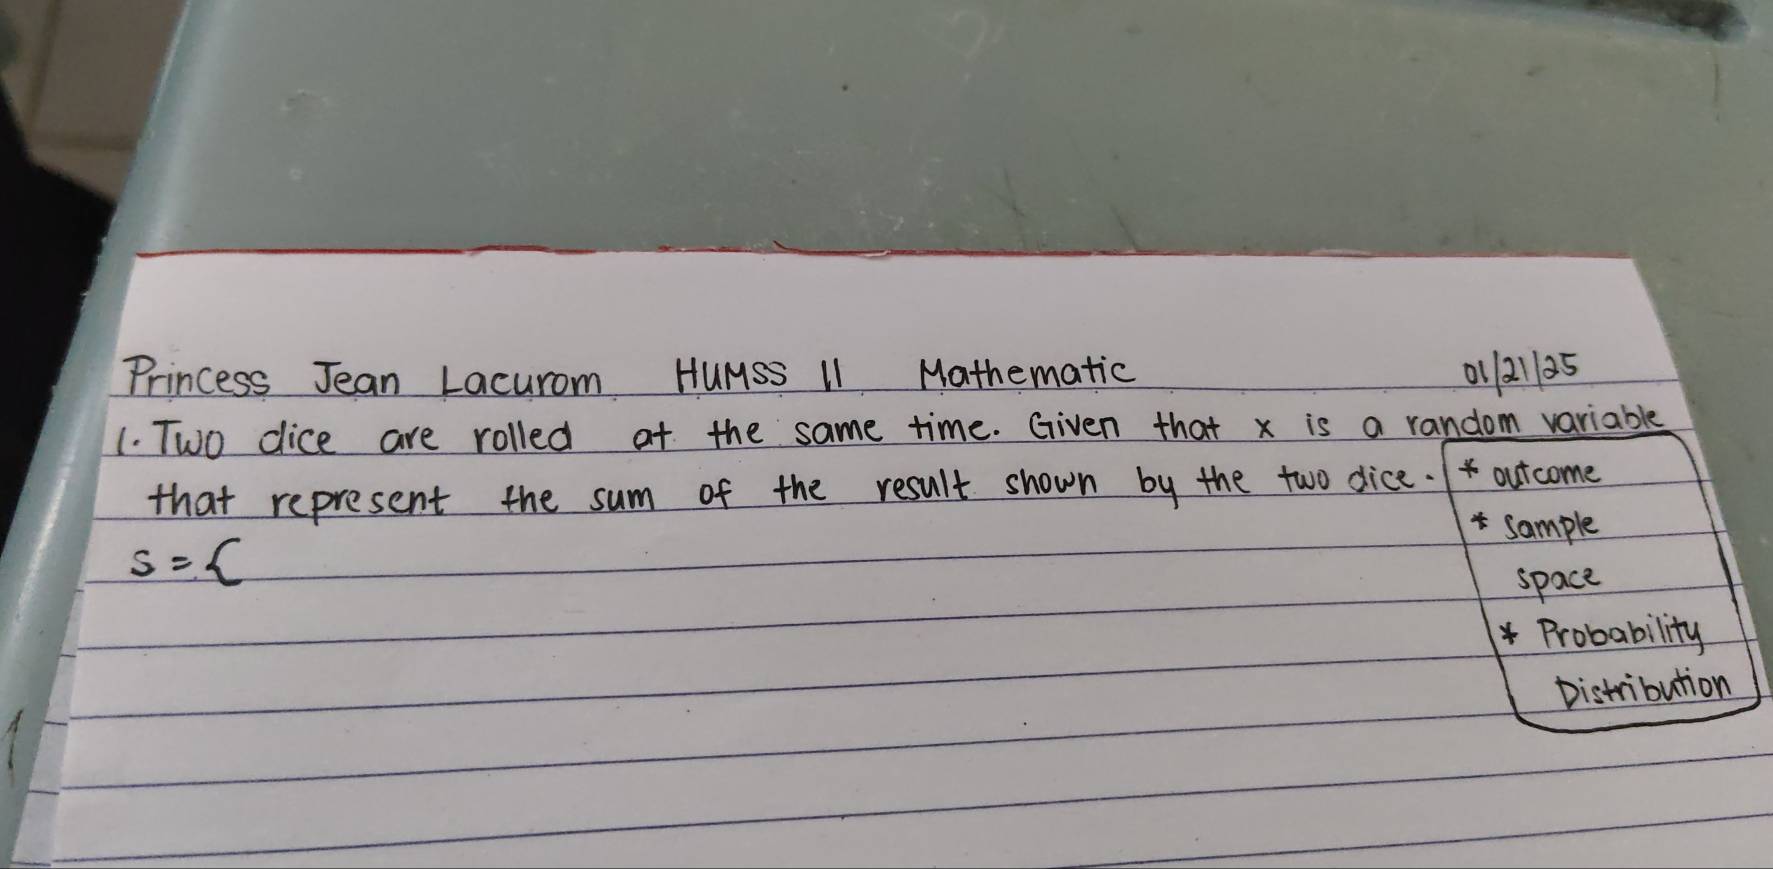 Princess Jean Lacurom HUMSS 11 Mathematic 01/21/25
1. Two dice are rolled at the same time. Given that x is a random variable
that represent the sum of the result shown by the two dice.
S = {
* outcome
* sample
space
* Probability
Distribution